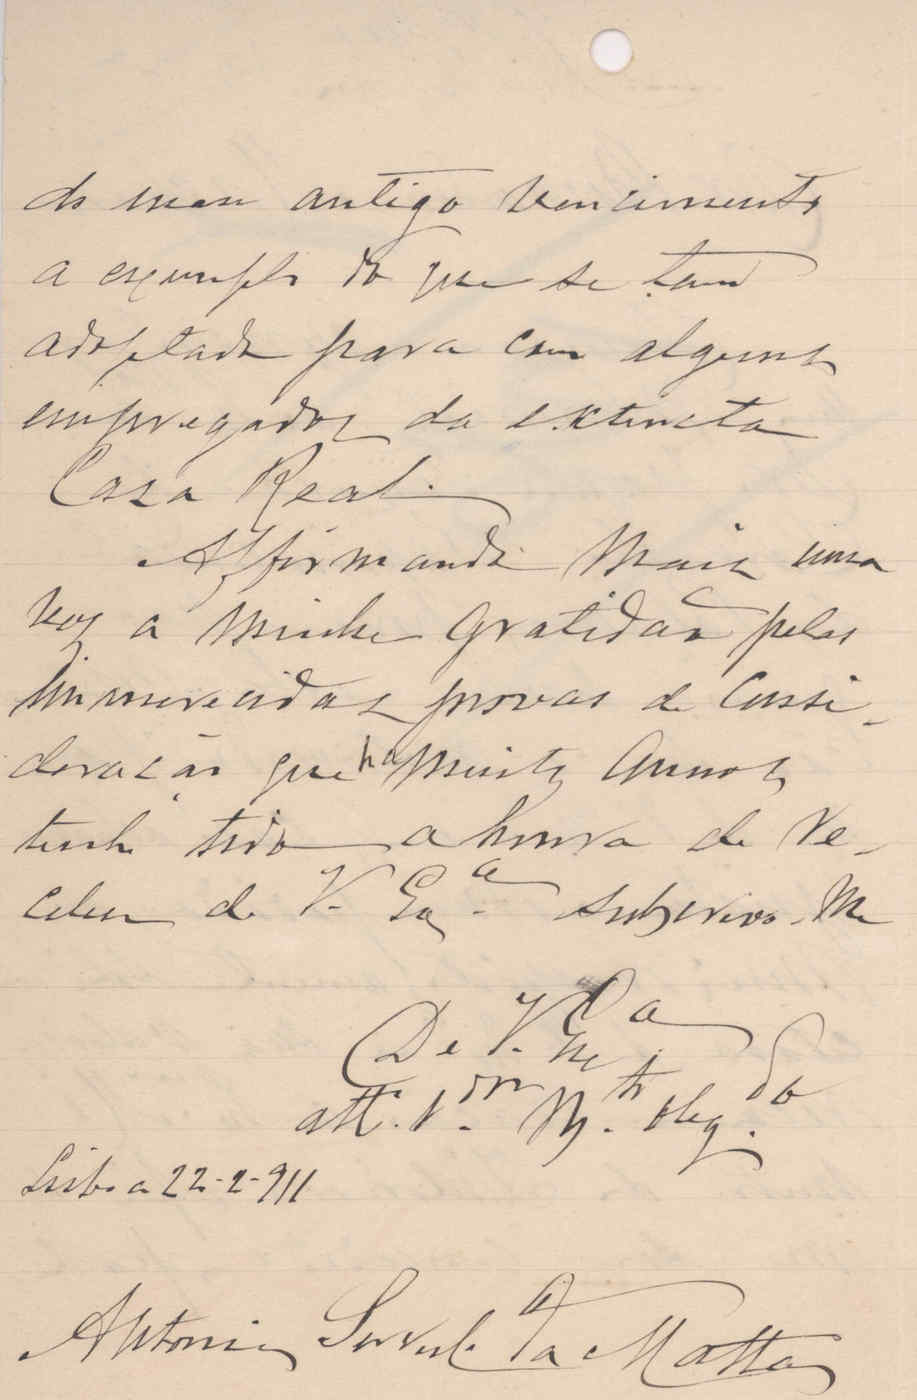 do meu antigo vencimento
a exemplo do que se tem
adoptado para com alguns
empregados da extincta
Casa Real.
Affirmando mais uma
vez a minha gratidão pelas
immerecidas provas de consi-
deração que ha muitos annos
tenho tido a honra de re-
ceber de V. Ex.ª subscrevo-me
De V. Ex.ª
att.º V.dor M.to Obg.do
Lisboa 22-2-911
Antonio da Motta